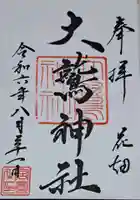 奉拝
花畑
大鷲神社
令和六年八月三十一日